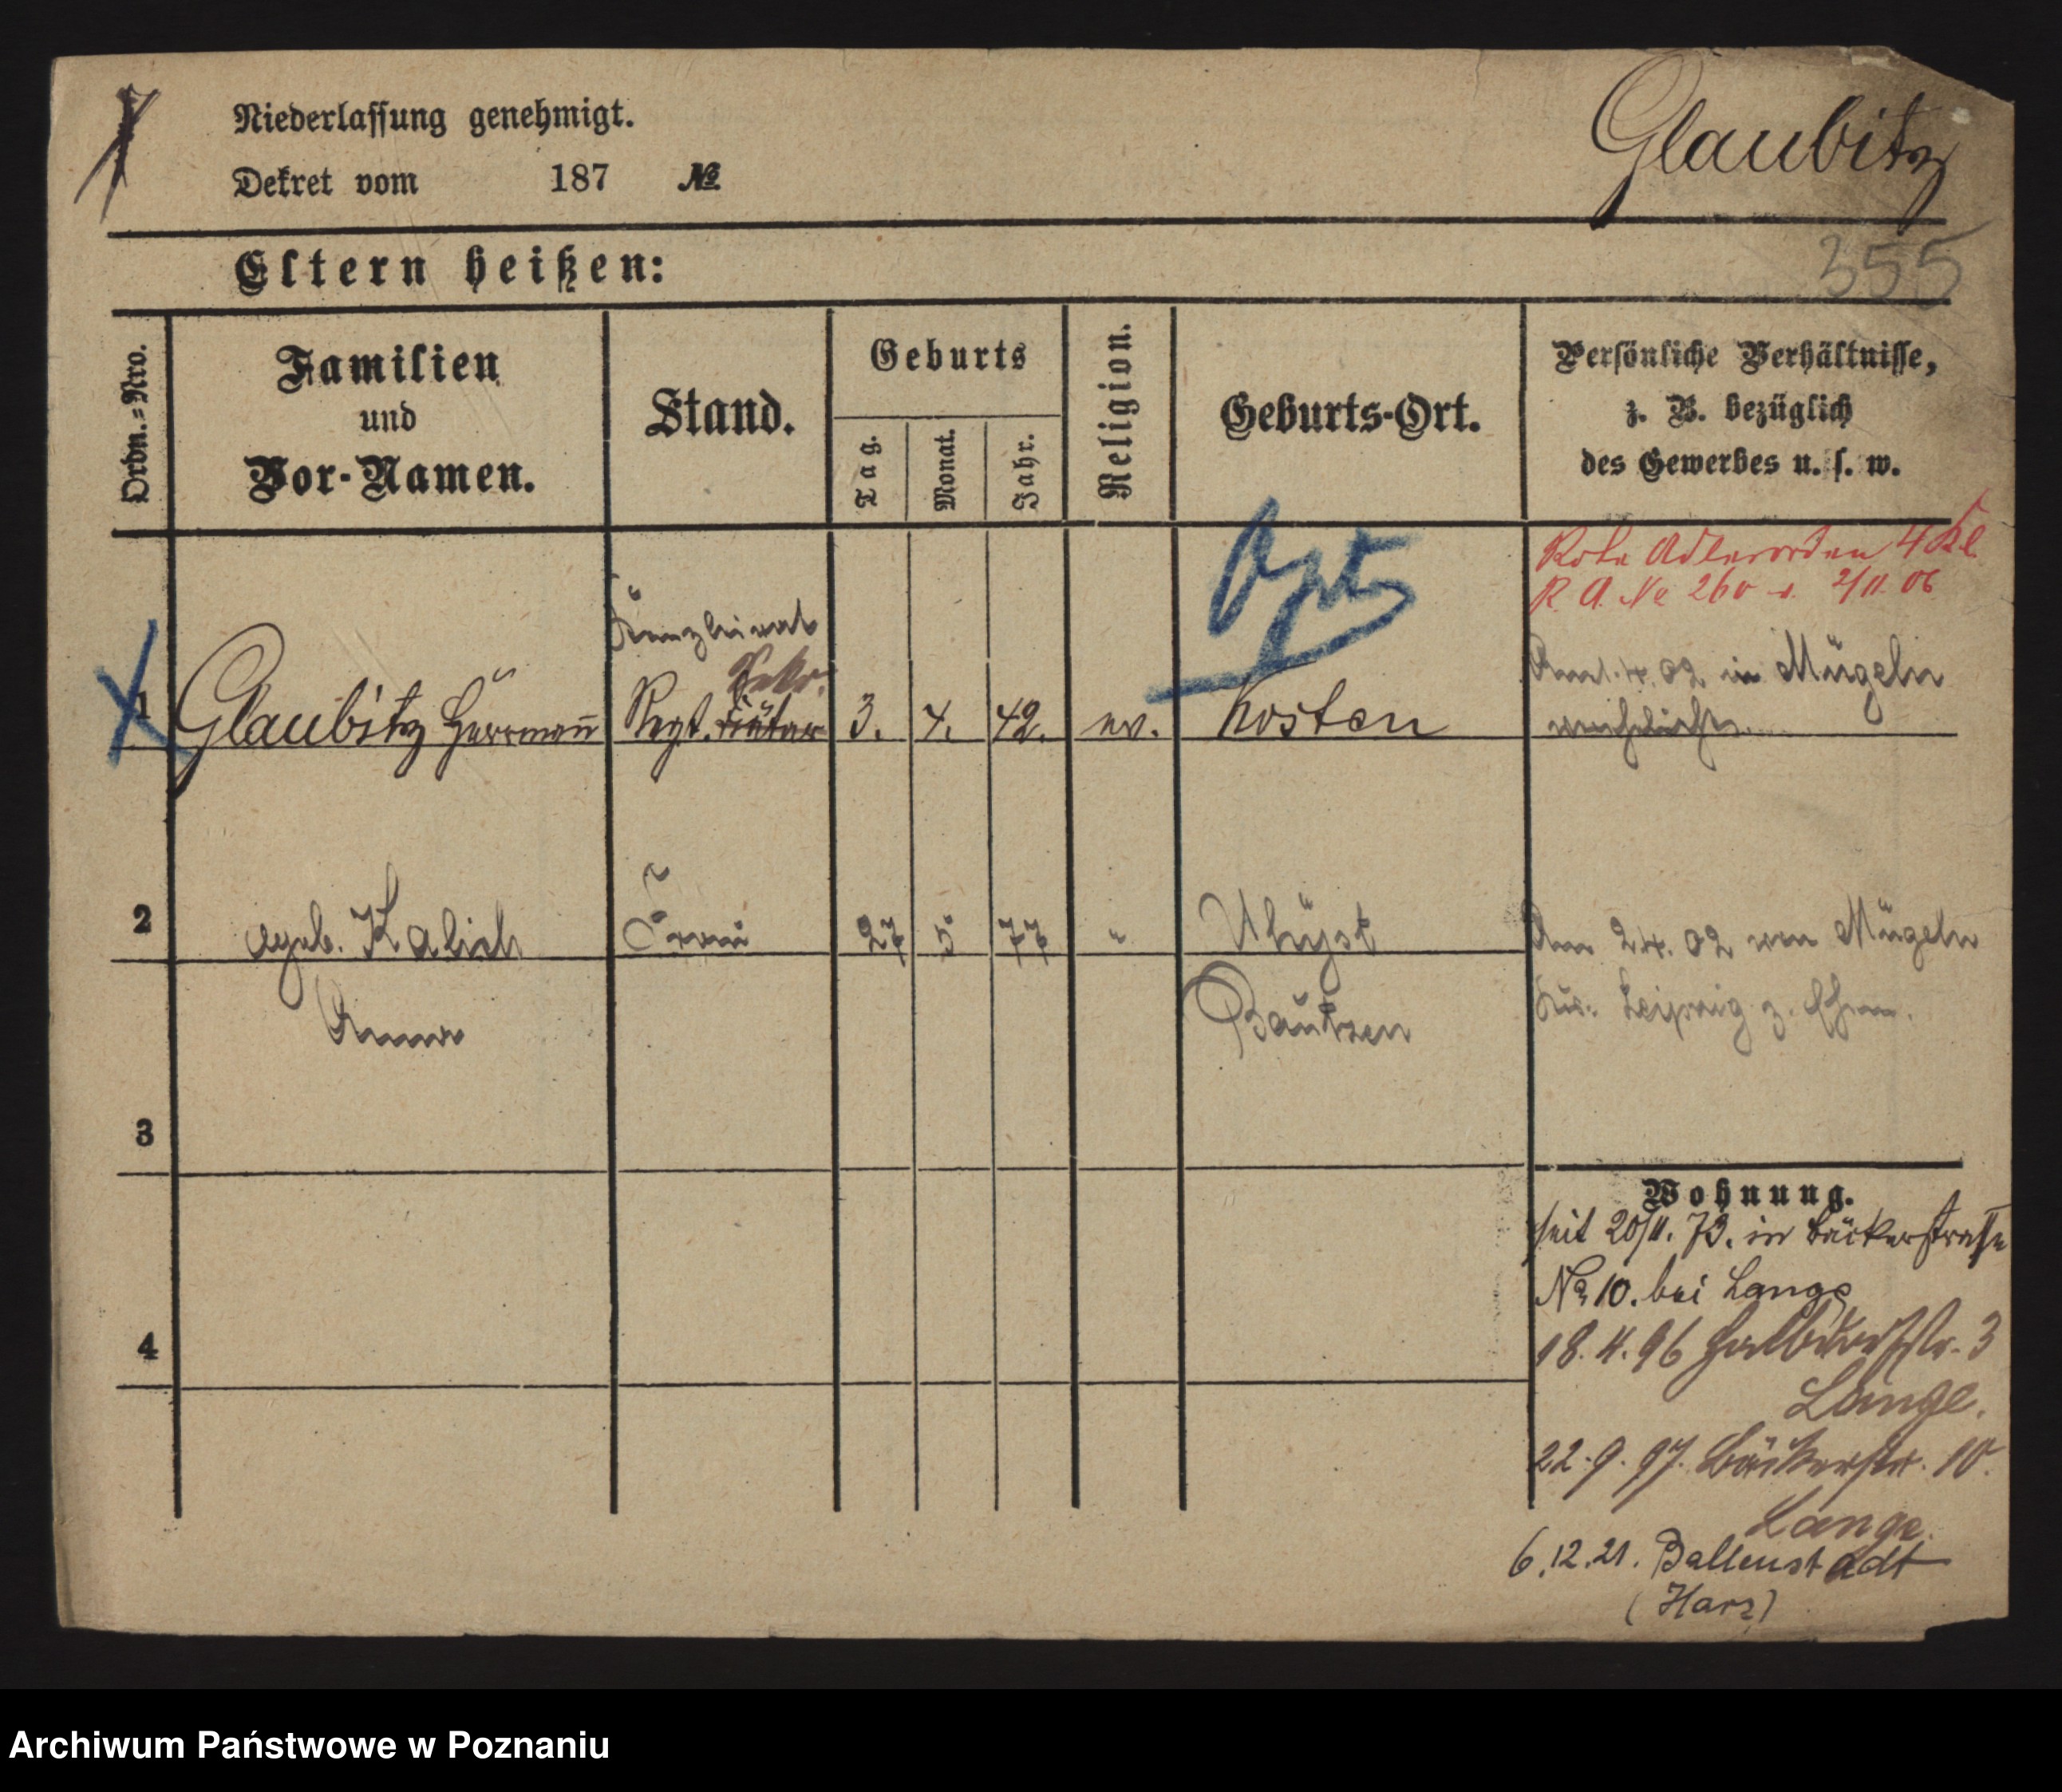 Niederlassung genehmigt.
Dekret vom 187 №
Glaubitz
355
Eltern heißen:
Ordn.=Nro.
Familien
und
Vor-Namen.
Stand.
Geburts
Tag.
Monat.
Jahr.
Religion.
Geburts-Ort.
Persönliche Verhältnisse,
z. B. bezüglich
des Gewerbes u. s. w.
Rote Adlerorden 4 Kl.
R. A. No 260 v. 2/11. 06
1 Glaubitz Herrmañ
Kanzleirat
Sekr.
Regt.
3. 4. 42. ev. Kosten
02 in Mügeln
verehelicht.
2 geb. Kalich
Anna
Frau
27 5 77 "
Uhyst
Bautzen
Am 2.4. 02 von Mügeln
Leipzig z. Ehem.
3
4
Wohnung.
seit 20/11. 73. in Bäckerstrasse
No 10. bei Lange
18. 4. 96 Halbdorfstr. 3
Lange.
22. 9. 97. Bäckerstr. 10.
Lange.
6.12.21. Ballenstadt
(Harz)
Archiwum Państwowe w Poznaniu